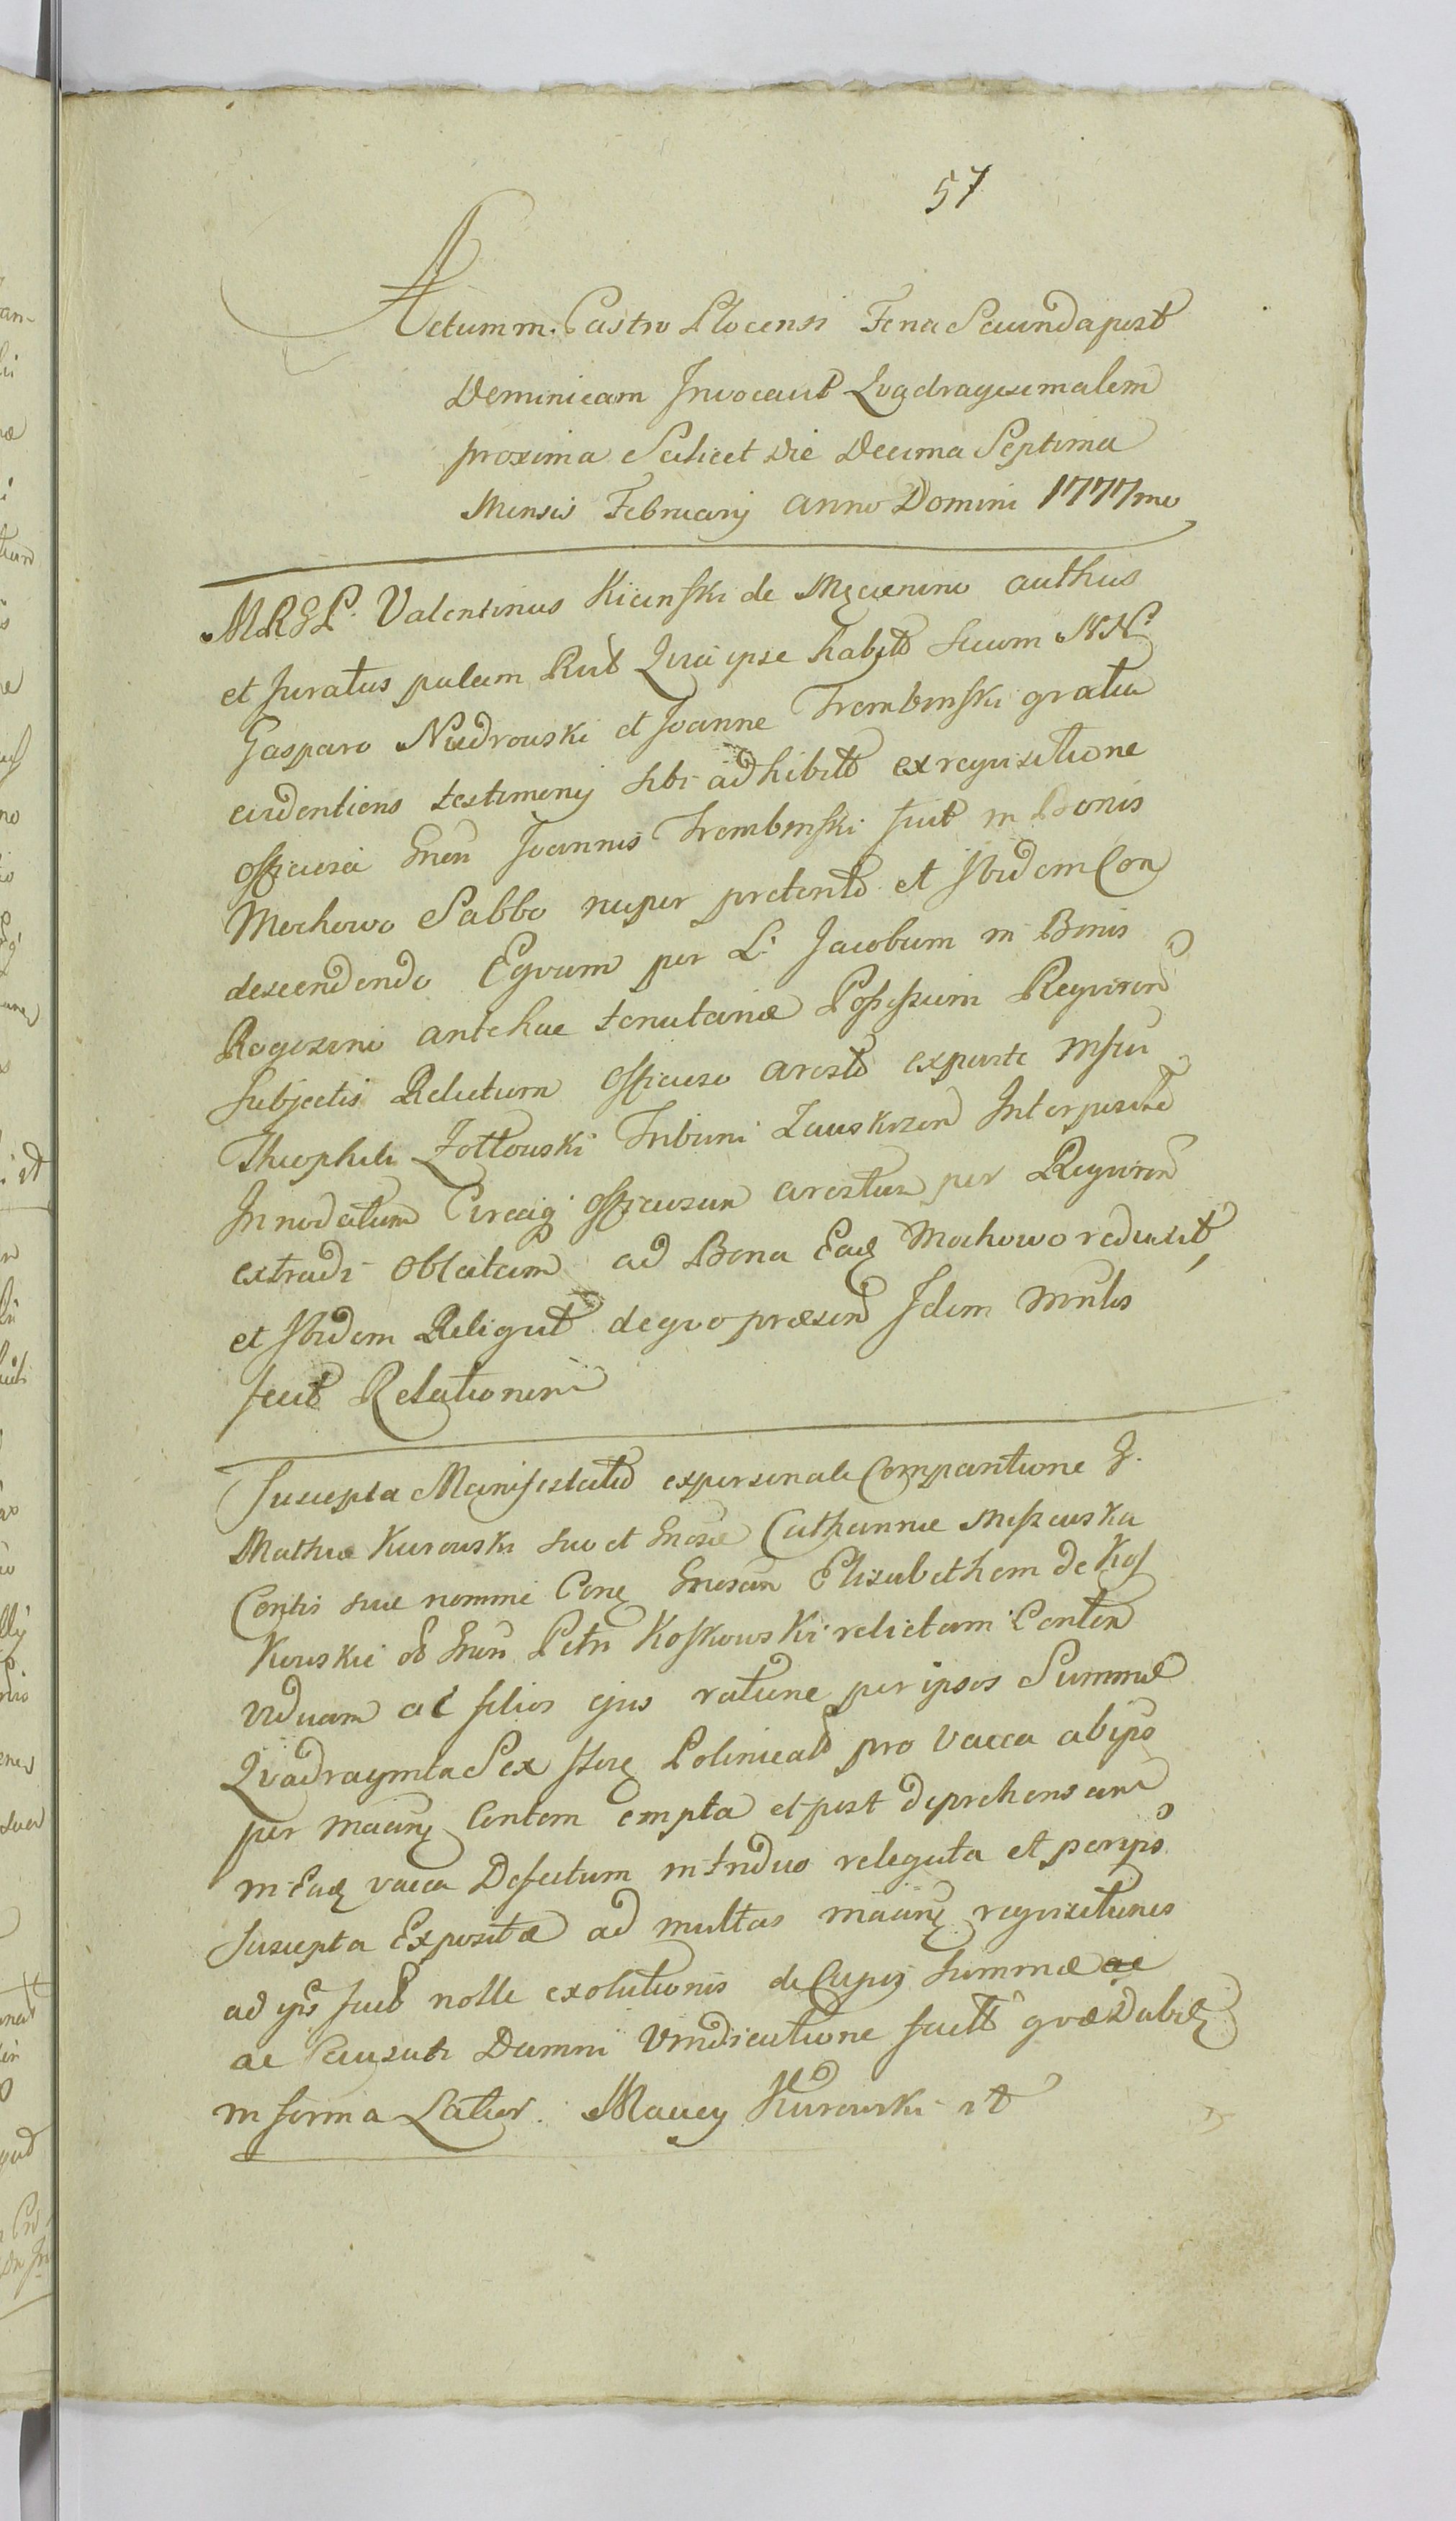 57
Actum in Castro Plocensi Feria Secunda post
Dominicam Invocavit Quadragesimalem
proxima Scilicet Die Decima Septima
Mensis Februarij anno Domini 1777mo
MRGP. Valentinus Kicinski de Męcenino authus
et Juratus palam Rlt Quia ipse habitis secum NN.
Gasparo Niedrowski et Joanne Trembinski gratia
evidentioris testimonij sibi adhibitis ex requisitione
officiosa Gnsi Joannis Trembinski fuit in Bonis
Mochowo Sabbo nuper preterito et Ibidem Con
descendendo Equum per L. Jacobum in Bonis
Rogozini antehac tenutariae Possessioni Requiren
Subjectis Relictum officioso aresto ex parte
Theophili Zottowski Tribuni Zauskrzen Interposito
Innodatum Circaq officiosum arestum per Requiren
extradi oblatam ad Bona Eaq Mochowo reduxit,
et Ibidem Reliquit de quo praesen Idem Mnlis
fecit Relationem
Suscepta Manifestatio ex personali Comparitione G.
Mathiae Kurowski suo et Gnosae Catharinae Miszewska
Contis suae nomine Conq Gnosam Elisabetham de Kos
Kowskie ob Gnsi Petri Koskowski relictam Conten
viduam ac filios ejus ratione per ipsos Summae
Quadraginta Sex flor Polonical pro Vacca ab ipso
per Contem empta et post deprehensum
in Eaq vacca Defectum in triduo relegata et per ipso
suscepta Expositae ad multas requisitiones
ad ips fact nolle exolutionis de Cujus summae
ac Causati Damni Vindicatione factt quae Dabitq
in forma Latior. Maciey Kurowski